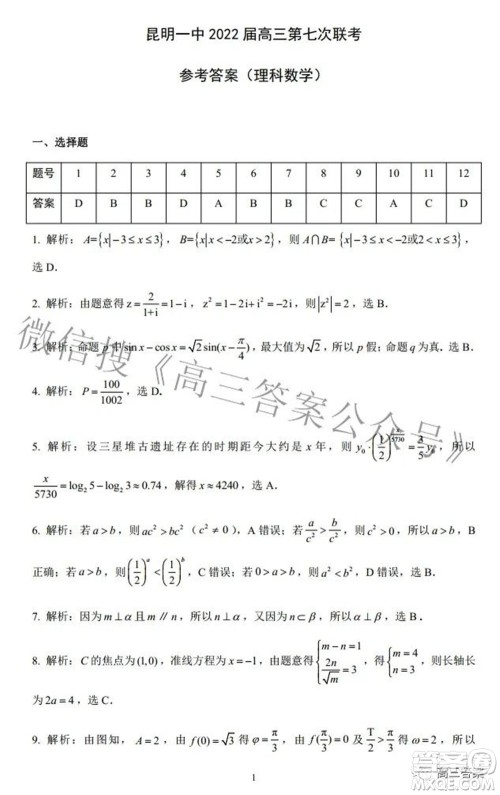 昆明一中 2022 届高三第七次联考
参考答案（理科数学）
一、选择题
题号 1 2 3 4 5 6 7 8 9 10 11 12
答案 D B A D A B B C C A C D
1. 解析：A={x|−3≤x≤3}，B={x|x<−2或x>2}，则 A∩B={x|−3≤x<−2或2<x≤3}，
选 D．
2. 解析：由题意得 z=2/(1+i)=1−i，z²=1−2i+i²=−2i，则|z²|=2，选 B．
3. 解析：命题 p 中 sin x−cos x=√2 sin(x−π/4)，最大值为√2，所以 p 假；命题 q 为真．选 A．
4. 解析：P=100/1002，选 D．
5. 解析：设三星堆古遗址存在的时期距今大约是 x 年，则 y₀·(1/2)^(x/5730)=3/5 y₀，所以
x/5730=log₂5−log₂3≈0.74，解得 x≈4240，选 A．
6. 解析：若 a>b，则 ac²>bc²（c²≠0），A 错误；若 a/c²>b/c²，则 a>b，所以，B
正确；若 a>b，则(1/2)^a<(1/2)^b，C 错误；若 0>a>b，则 a²<b²，D 错误；选 B．
7. 解析：因为 m⊥α 且 m∥n，所以 n⊥α，又因为 n⊂β，所以 α⊥β，选 B．
8. 解析：C 的焦点为(1,0)，准线方程为 x=−1，由题意得{m−n=1 2n/√m=3，得{m=4 n=3，则长轴长
为 2a=4，选 C．
9. 解析：由图知，A=2，由 f(0)=√3 得 φ=π/3，由 f(π/3)=0 及 T/2>π/3 得 ω=2，所以
1
微信搜《高三答案公众号》
高三答案